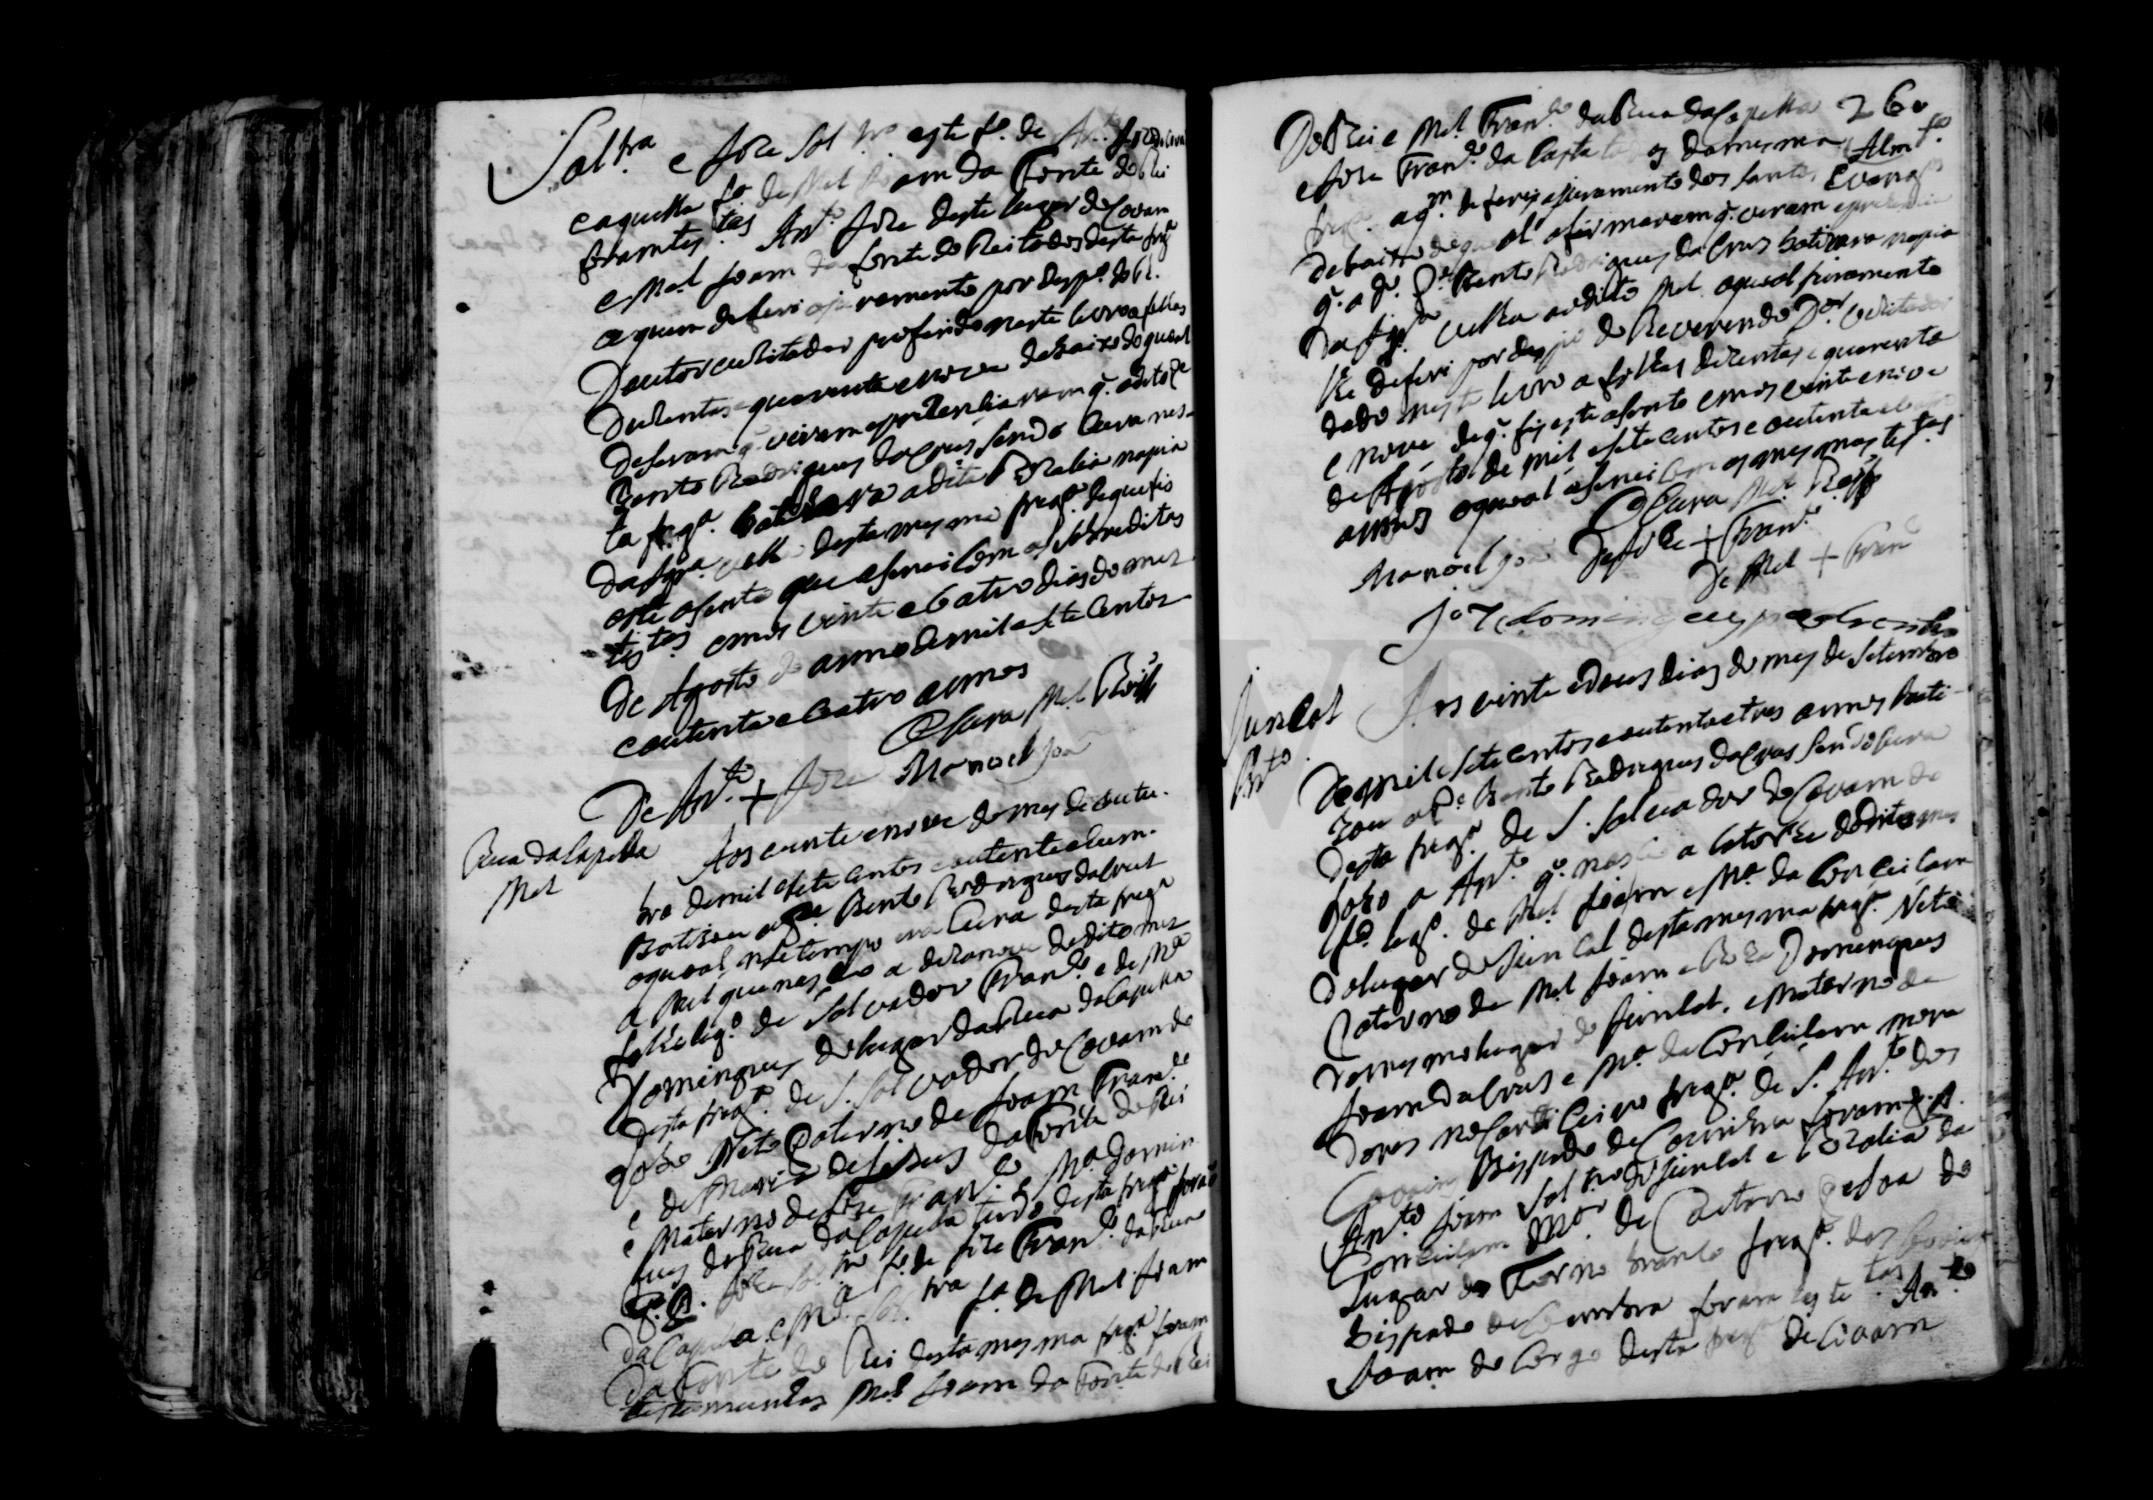 Soltra e Jose Solt.ro este f.o de Ant.o Jose do Covam
e aquella f.a de Mel Joam da Fonte do Rei
foram tes.tas Ant.o Jose deste lugar do Covam
e Mel Joam da fonte do Rei todos desta freg.a
a quem deferi o juramento por desp.o do R.
Doutor vezitador proferido neste livro a folhas
duzentas e quarenta e nove debaixo do qual
deseram q. viram e prezenciaram q. o dito P.e
Bento Rodrigues da Crus sendo Cura nes-
ta freg.a batizara a dita Rozalia na pia
da Igr.a velha desta mesma freg.a de que fis
este asento que asinei com as sobreditas
tes.tas em os vinte e coatro dias do mez
de Agosto do anno de mil e sete centos
e outenta e coatro annos
O Cura Mel Roiz
De Ant.o + Jose Manoel Joam
Rua da Capella
Mel
Aos vinte e nove do mes de outu-
bro de mil e sete centos e outenta e hum
Batizou o P.e Bento Rodrigues da Crus
o qual nese tempo era Cura desta freg.a
a Mel que nasceo a dezanove do dito mez
f.o leg.o de Salvador Fran.co e de M.a
Domingues do lugar da Rua da Capella
desta freg.a de S. Salvador do Covam do
Lobo Neto Paterno de Joam Fran.co
e de Maria de Jesus da Fonte do Rei
e Materno de Jose Fran.co M.a Domin
gues da Rua da Capella tudo desta freg.a foram
P.P. Jose Sol.tro f.o de Jose Fran.co da Rua
da Capella e M.a Sol.tra f.a de Mel Joam
da Fonte do Rei desta mesma freg.a foram
testemunhas Mel Joam da Fonte do Rei
260
Do Rei e Mel Fran.co da Rua da Capella
e Jose Fran.co da todos da mesma
freg.a a q.m deferi o juramento dos Santos Evang.os
debaixo do qual afirmaram q. viram e prezenciaram
q. o d.o P.e Bento Rodrigues da Crus batizara na pia
da Igr.a velha ao dito Mel o qual juramento
lhe deferi por desp.o do Reverendo D.or vezitador
dado neste livro a folhas duzentas e quarenta
e nove de q. fis este asento em os vinte e nove
de Agosto de mil e sete centos e outenta e
annos o qual asinei com as mesmas tes.tas
O Cura Mel Roiz
Manoel Joam De Jose + Fran.co
De Mel + Fran.co
Juncal
Ant.o
Aos vinte e dous dias do mes de Setembro
de mil e sete centos e outenta e tres annos bati-
zou o P.e Bento Rodrigues da Crus sendo Cura
desta freg.a de S. Salvador do Covam do
Lobo a Ant.o q. nasceo a catorze do dito mes
f.o leg.o de Mel Joam e M.a da Conceicam
do lugar do Juncal desta mesma freg.a Neto
Paterno de Mel Joam e Roza Domingues
do mesmo lugar do Juncal, e Materno de
Joam da Crus e M.a da Conceicam mora
dores no freg.a de S. Ant.o dos
Covoins Bispado de Coimbra foram P.P.
Ant.o Joam Solt.ro do Juncal e Rozalia da
Conceicam M.er de Caetano do
lugar do Forno branco freg.a dos Covoins
bispado de Coimbra foram teste.tas Ant.o
Joam do Corgo desta freg.a do Covam